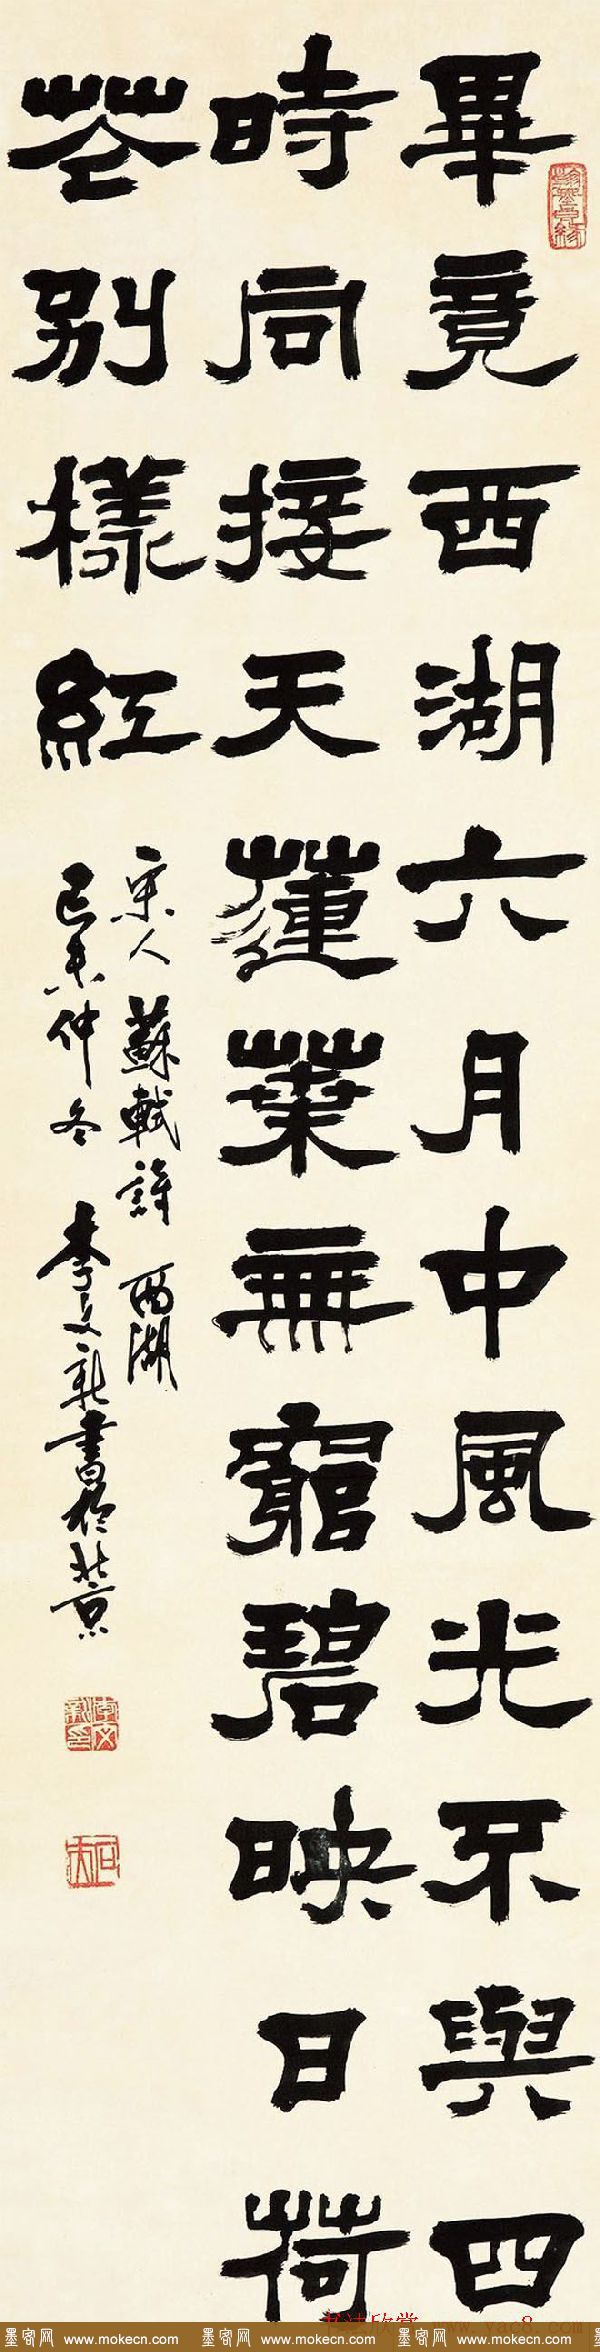 畢竟西湖六月中風光不與四
時同接天蓮葉無窮碧映日荷
花別樣紅
宋人蘇軾詩西湖
己未仲冬李文新書於北京
李文新印
書法欣賞www.yac8.com
墨客网 www.mokecn.com 墨客网 www.mokecn.com 墨客网 www.mokecn.com